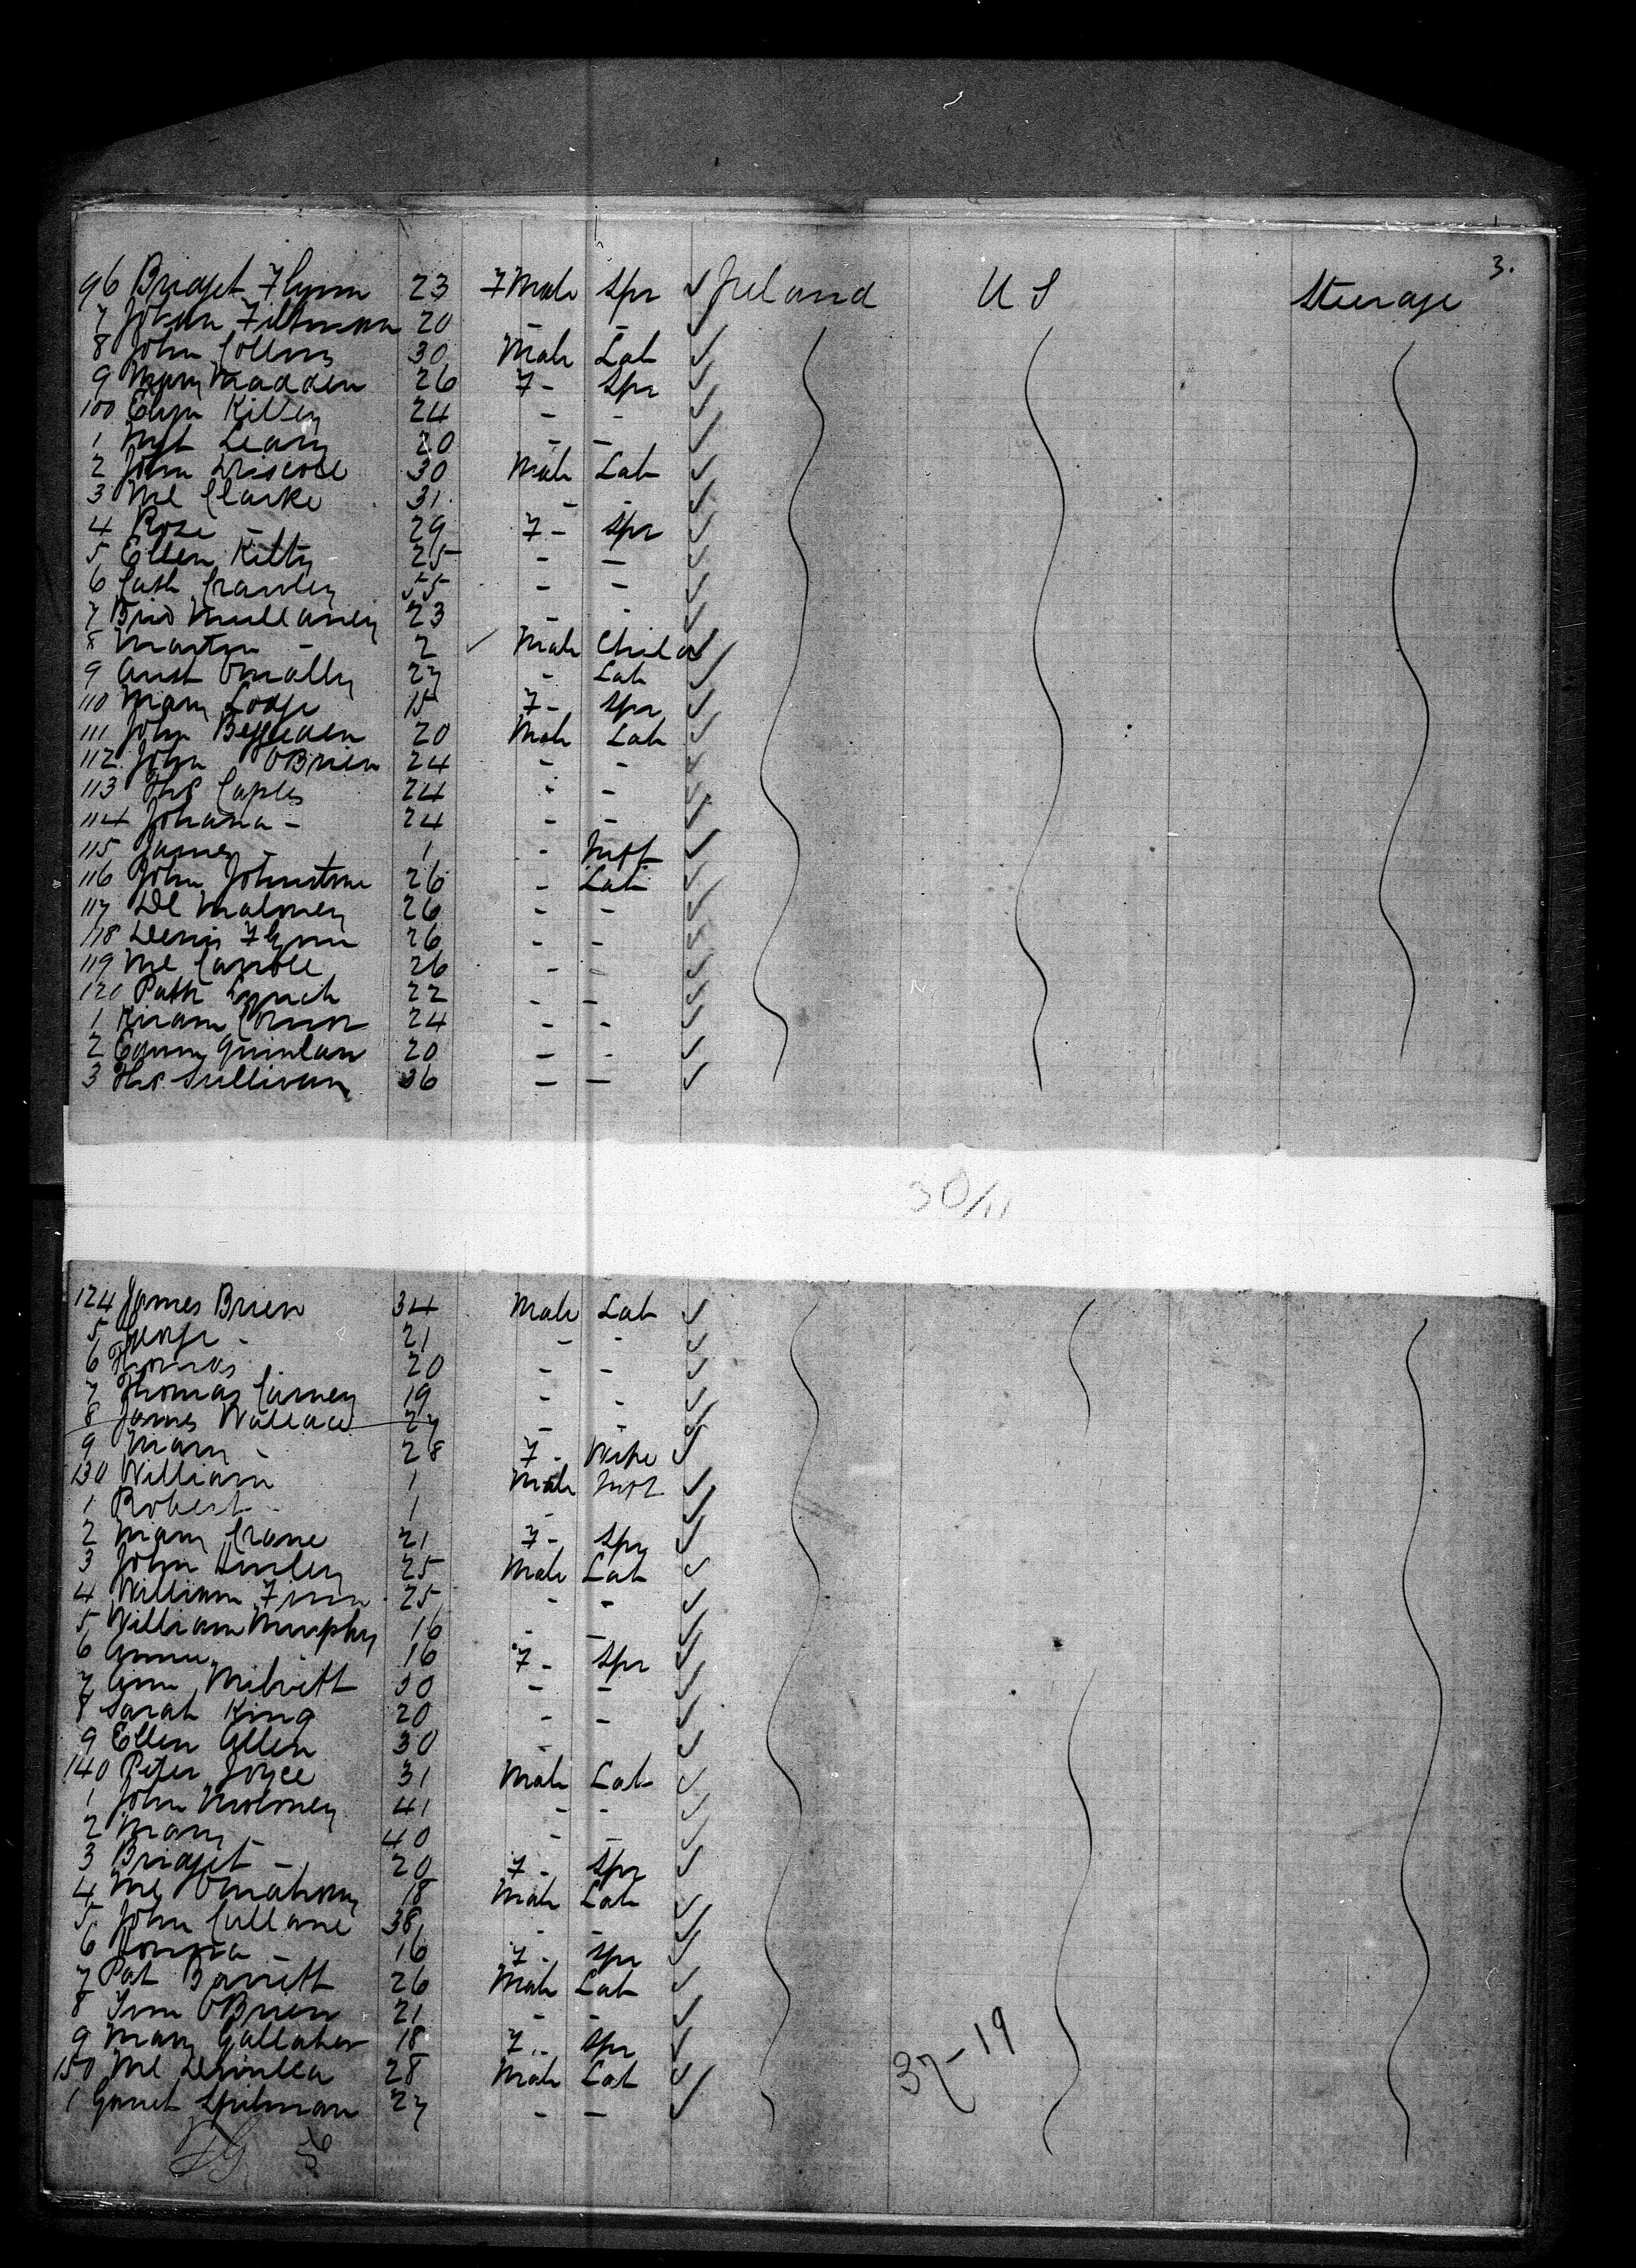 3.
96 Bridget Flynn 23 F Male Spr ✓ Ireland U S Steerage
7 Johan 20 - - ✓
8 John Collins 30 Male Lab ✓
9 Mary Madden 26 F - Spr ✓
100 Kilty 24 - - ✓
1 Mgt Leary 20 - - ✓
2 John Driscole 30 Male Lab ✓
3 Ml Clarke 31 - - ✓
4 Rose - 29 F - Spr ✓
5 Ellen Kilty 25 - - ✓
6 Cath Crawley 55 - - ✓
7 Brid Mullaney 23 - - ✓
8 Martin - 2 ✓ Male Child ✓
9 Aust Omally 27 - Lab ✓
110 Mary Lodge 15 F - Spr ✓
111 John 20 Male Lab ✓
112 John OBrien 24 - - ✓
113 Ths Caples 24 - - ✓
114 Johana - 24 - - ✓
115 James - 1 - Inft ✓
116 John Johnstone 26 - Lab ✓
117 Dl Maloney 26 - - ✓
118 Denis Flynn 26 - - ✓
119 Ml Carrole 26 - - ✓
120 Patk Lynch 22 - - ✓
1 Connor 24 - - ✓
2 Quinlan 20 - - ✓
3 Ths Sullivan 36 - - ✓
30/11
124 James Brien 34 Male Lab ✓
5 George - 21 - - ✓
6 Thomas 20 - - ✓
7 Thomas Carney 19 - - ✓
8 James Wallace 27 - - ✓
9 Mary - 28 F - Wife ✓
130 William 1 Male Inft ✓
1 Robert 1 - ✓
2 Mary Crane 21 F - Spr ✓
3 John 25 Male Lab ✓
4 William Finn 25 - - ✓
5 William Murphy 16 - - ✓
6 Annie 16 F - Spr ✓
7 Ann 30 - - ✓
8 Sarah King 20 - - ✓
9 Ellen Allen 30 - ✓
140 Peter Joyce 31 Male Lab ✓
1 John Moloney 41 - - ✓
2 Mary - 40 - - ✓
3 Bridget - 20 F - Spr ✓
4 Ml Omahony 18 Male Lab ✓
5 John Cullane 38 - - ✓
6 Honora - 16 F - Spr ✓
7 Pat Barrett 26 Male Lab ✓
8 Tim OBrien 21 - - ✓
9 Mary Gallaher 18 F - Spr ✓
37-19
150 Ml 28 Male Lab ✓
1 Garret 27 - - ✓